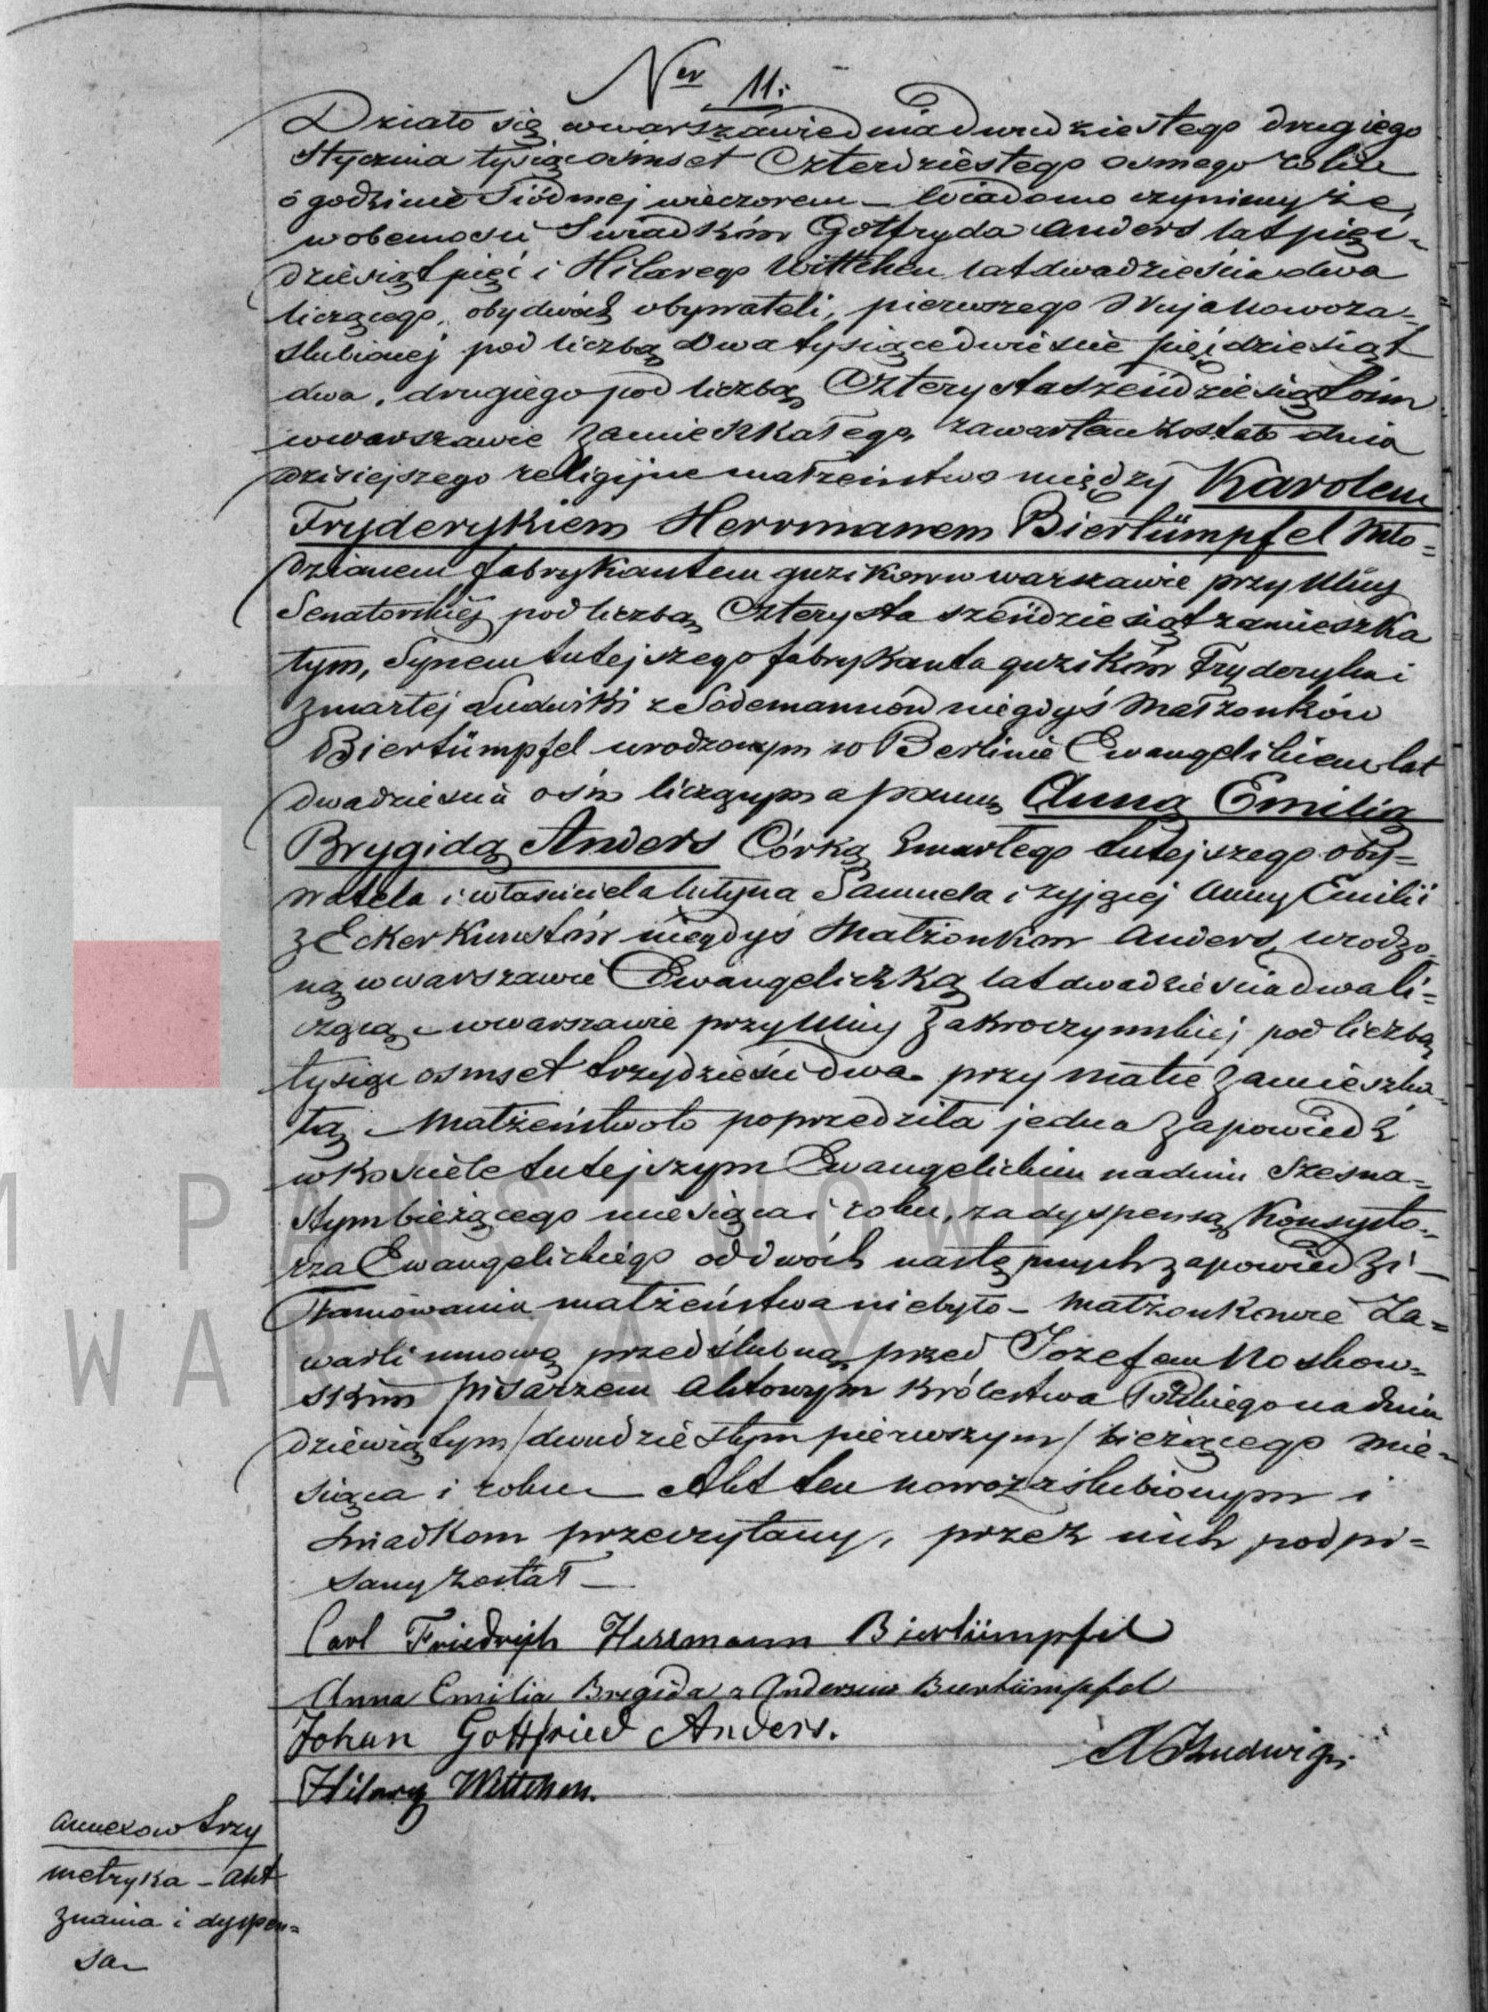 Ner 11.
Działo się w Warszawie dnia dwudziestego drugiego
Stycznia tysiąc osmset Czterdziestego osmego roku
o godzinie Siódmej wieczorem – Wiadomo czynimy że,
w obecności Swiadków Gotfryda Anders lat pięć-
dziesiąt pięć i Hilarego Wittchen lat dwadzieścia dwa
liczącego, obydwóch obywateli, pierwszego Wuja Nowoza-
slubionej pod liczbą Dwa tysiące dwieście pięćdziesiąt
dwa, drugiego pod liczbą Czterysta sześćdziesiąt ośm
w Warszawie Zamieszkałego, zawartem zostało dnia
dzisiejszego religijne małżeństwo między Karolem
Fryderykiem Herrmanem Biertümpfel Mło-
dzianem fabrykantem guzików w Warszawie przy Ulicy
Senatorskiéj pod liczbą Czterysta sześćdziesiąt zamieszka
łym, Synem tutejszego fabrykanta guzików Fryderyka i
Zmarłéj Ludwiki z Sodemannów niegdyś Małżonków
Biertümpfel urodzonym w Berlinie Ewangelikiem lat
dwadzieścia ośm liczącym a panną Anną Emilią
Brygidą Anders Córką Zmarłego tutejszego oby=
watela i właściciela młyna Samuela i żyjącéj Anny Emilii
z Eckerkunstów niegdyś Małżonków Anders, urodzo-
ną w Warszawie Ewangeliczką lat dwadzieścia dwa li=
czącą w Warszawie przy Ulicy Zakroczymskiéj pod liczbą
tysiąc osmset trzydzieści dwa przy matce Zamieszka-
łą. Małżeństwo to poprzedziła jedna Zapowiedź
w kościele tutejszym Ewangelickim na dniu Szesna=
stym bieżącego miesiąca i roku, za dyspensą Konsysto-
rza Ewangelickiego od dwóch następnych zapowiedzi –
Tamowania małżeństwa nie było – Małżonkowie Za=
warli umowę przedślubną przed Józefem Noskow-
skim pisarzem Aktowym Królestwa Polskiego na dniu
dziewiątym /dwudziestym pierwszym/ bieżącego mie-
siąca i roku – Akt ten nowozaślubionym i
Swiadkom przeczytany, przez nich podpi=
sany został –
Carl Friedrich Herrmann Biertümpfel
Anna Emilia Brygida z Andersów Biertümpfel
Johan Gottfried Anders.
Ludwig
Hilary Wittchen.
Annexow trzy
metryka – Akt
znania i dyspen=
sa